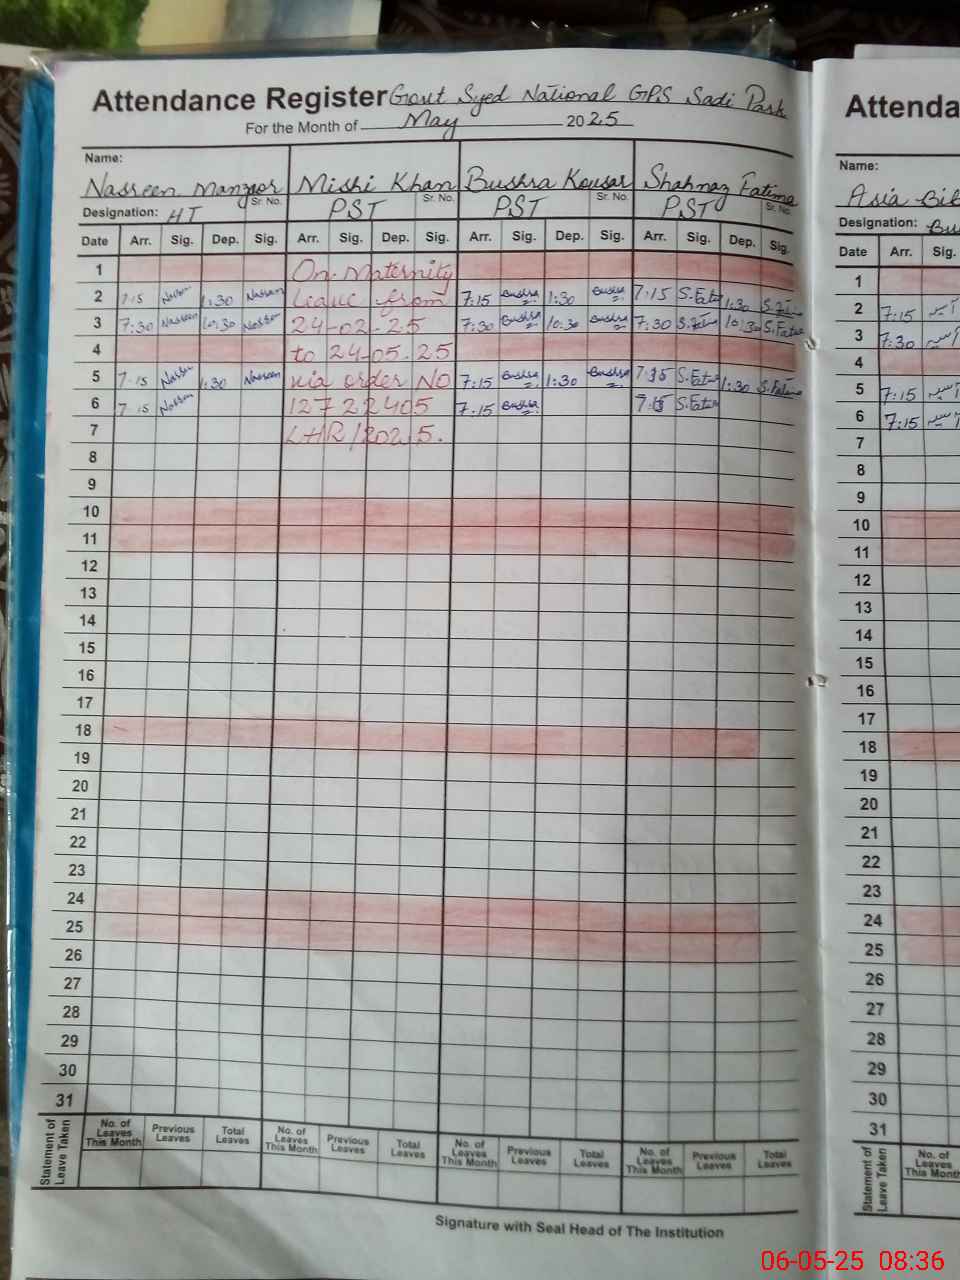 Attendance Register Govt Syed National GPS Sadi Park
For the Month of May 2025
Name:
Nasreen Manzoor Mishi Khan Bushra Kousar Shahnaz Fatima
Designation: HT Sr. No. PST Sr. No. PST Sr. No. PST Sr. No.
Date Arr. Sig. Dep. Sig. Arr. Sig. Dep. Sig. Arr. Sig. Dep. Sig. Arr. Sig. Dep. Sig.
1 On Maternity
2 7:15 Nasreen 1:30 Nasreen leave from 7:15 Bushra 1:30 Bushra 7:15 S.Fatima 1:30 S.Fatima
3 7:30 Nasreen 10:30 Nasreen 24-02-25 7:30 Bushra 10:30 Bushra 7:30 S.Fatima 10:30 S.Fatima
4 to 24-05.25
5 7:15 Nasreen 1:30 Nasreen via order NO 7:15 Bushra 1:30 Bushra 7:15 S.Fatima 1:30 S.Fatima
6 7:15 Nasreen 12722405 7:15 Bushra 7:15 S.Fatima
7 LHR/2025.
8
9
10
11
12
13
14
15
16
17
18
19
20
21
22
23
24
25
26
27
28
29
30
31
Statement of Leave Taken No. of Leaves This Month Previous Leaves Total Leaves No. of Leaves This Month Previous Leaves Total Leaves No. of Leaves This Month Previous Leaves Total Leaves No. of Leaves This Month Previous Leaves Total Leaves
Signature with Seal Head of The Institution
Attenda
Name:
Asia Bib
Designation:
Date Arr. Sig.
1
2 7:15 آسیہ
3 7:30 آسیہ
4
5 7:15 آسیہ
6 7:15 آسیہ
7
8
9
10
11
12
13
14
15
16
17
18
19
20
21
22
23
24
25
26
27
28
29
30
31
Statement of Leave Taken No. of Leaves This Month
06-05-25 08:36